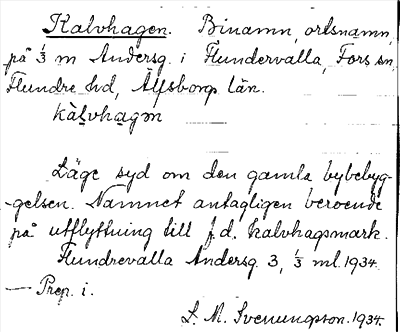 Kalvhagen. Binamn, ortsnamn,
på 1/3 m Andersg. i Flundervalla, Fors sn,
Flundre hd, Älfsborgs län.
kàlvhagən
Läge syd om den gamla bybebyg-
-gelsen. Namnet antagligen beroende
på utflyttning till f.d. kalvhagsmark.
Flundrevalla Andersg. 3, 1/3 ml. 1934.
— Prep. i.
L. M. Svenungson. 1934.